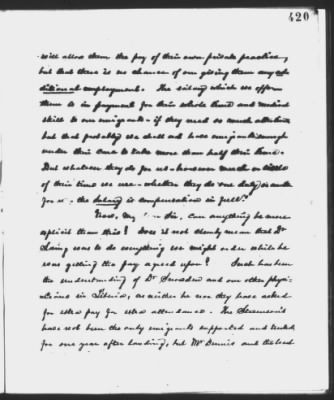 420
will allow them the pay of their own private practice,
but that there is no chance of our giving them any ad
ditional employment. The salary which we offer
them is in payment for their whole time and medical
skill to our emigrants if they need so much attention
but that probably we shall not have emigrants enough
under their care to take more than half their time.
But whatever they do for us however much or little
of their time we use whether they do one duty or another
for us the salary is compensation in full".
Now, my Sir, can anything be more
explicit than this? Does it not clearly mean that Dr
Laing was to do everything we might order while he
was getting the pay agreed upon? Such has been
the understanding of Dr Snowden and our other physi
cians in Liberia, as neither he nor they have asked
for extra pay for extra attendance. The
have not been the only emigrants supported and tended
for one year after landing, but Mr Dennis and the